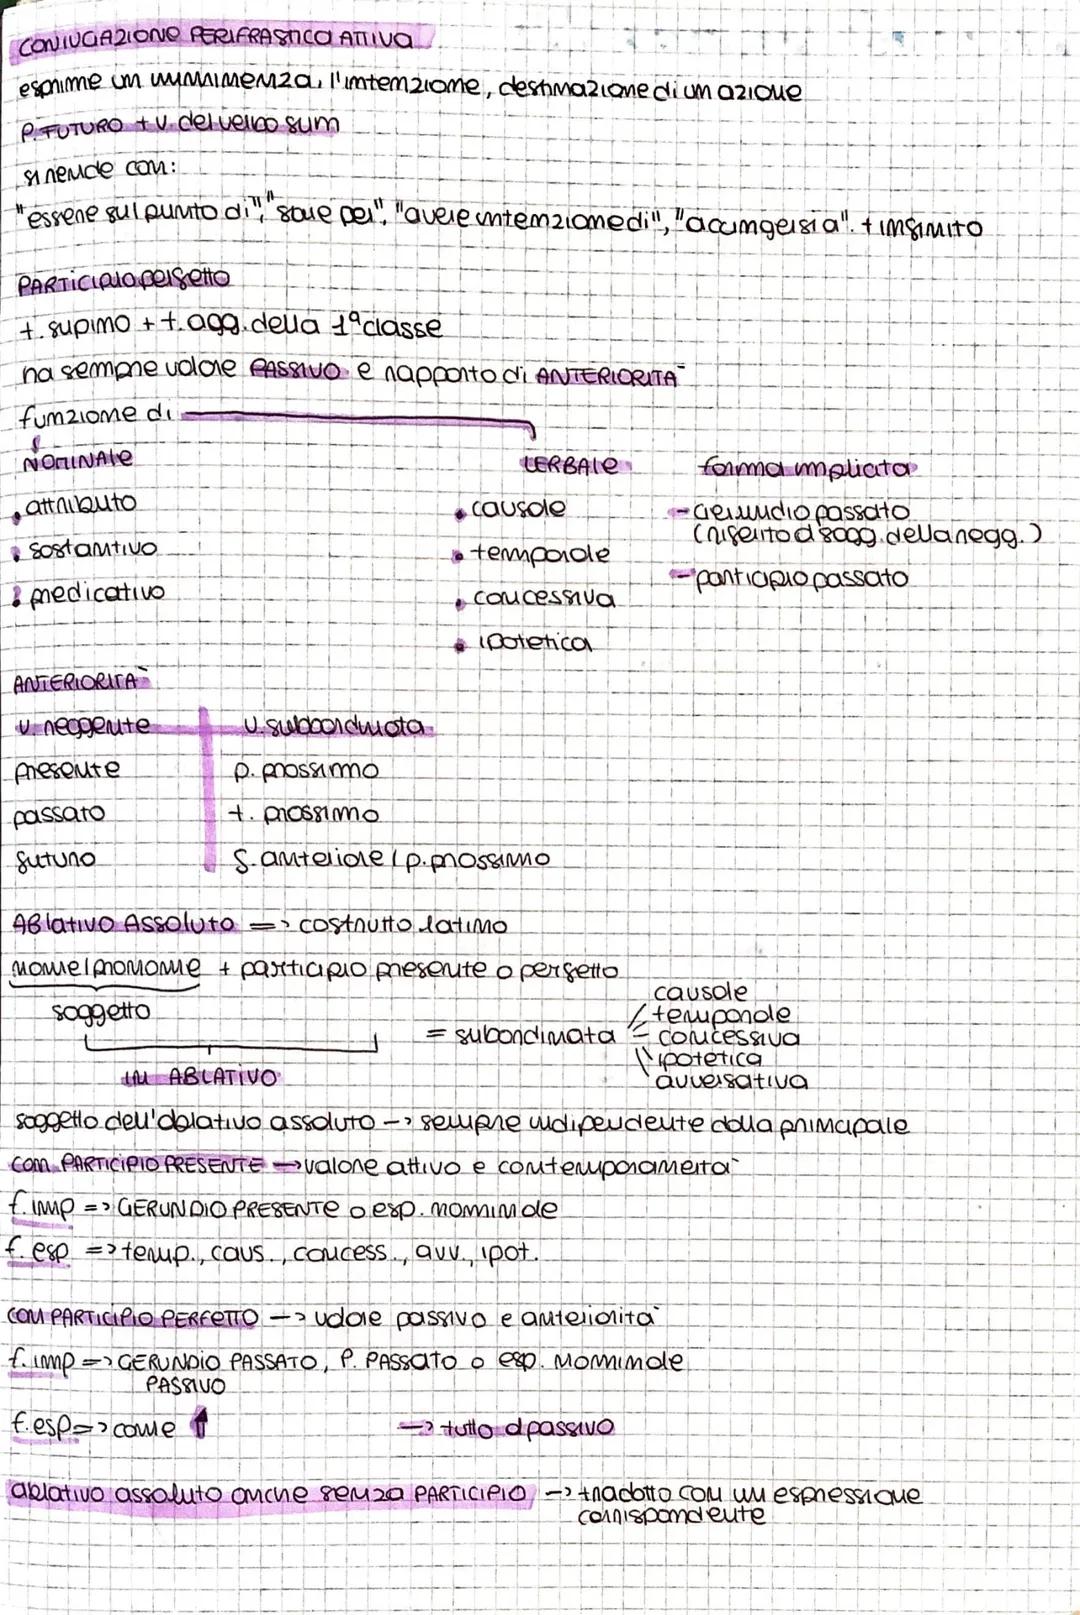 CONIUGAZIONE PERIFRASTICA ATTIVA
esprime un imminenza, l'intenzione, destinazione di un azione
P. FUTURO + v. del verbo sum
si rende con:
"essere sul punto di", "stare per", "avere intenzione di", "accingersi a". + infinito
PARTICIPIO perfetto
t. supino + t. agg. della 1ª classe
ha sempre valore PASSIVO e rapporto di ANTERIORITÀ
funzione di
NOMINALE VERBALE forma implicita
• attributo • causale - gerundio passato
(riferito al sogg. della regg.)
• sostantivo • temporale - participio passato
• predicativo • concessiva
• ipotetica
ANTERIORITÀ
v. reggente v. subbordinata
presente p. prossimo
passato t. prossimo
futuro f. anteriore / p. prossimo
ABlativo Assoluto => costrutto latino
nome/pronome + participio presente o perfetto
soggetto causale
temporale
= subordinata - concessiva
ipotetica
IN ABLATIVO avversativa
soggetto dell'ablativo assoluto -> sempre indipendente dalla principale
con PARTICIPIO PRESENTE -> valore attivo e contemporaneità
f. imp => GERUNDIO PRESENTE o esp. nominale
f. esp => temp., caus., concess., avv., ipot.
CON PARTICIPIO PERFETTO -> valore passivo e anteriorità
f. imp => GERUNDIO PASSATO, P. PASSATO o esp. nominale
PASSIVO
f. esp => come ↑ -> tutto al passivo
ablativo assoluto anche senza PARTICIPIO -> tradotto con un espressione
corrispondente